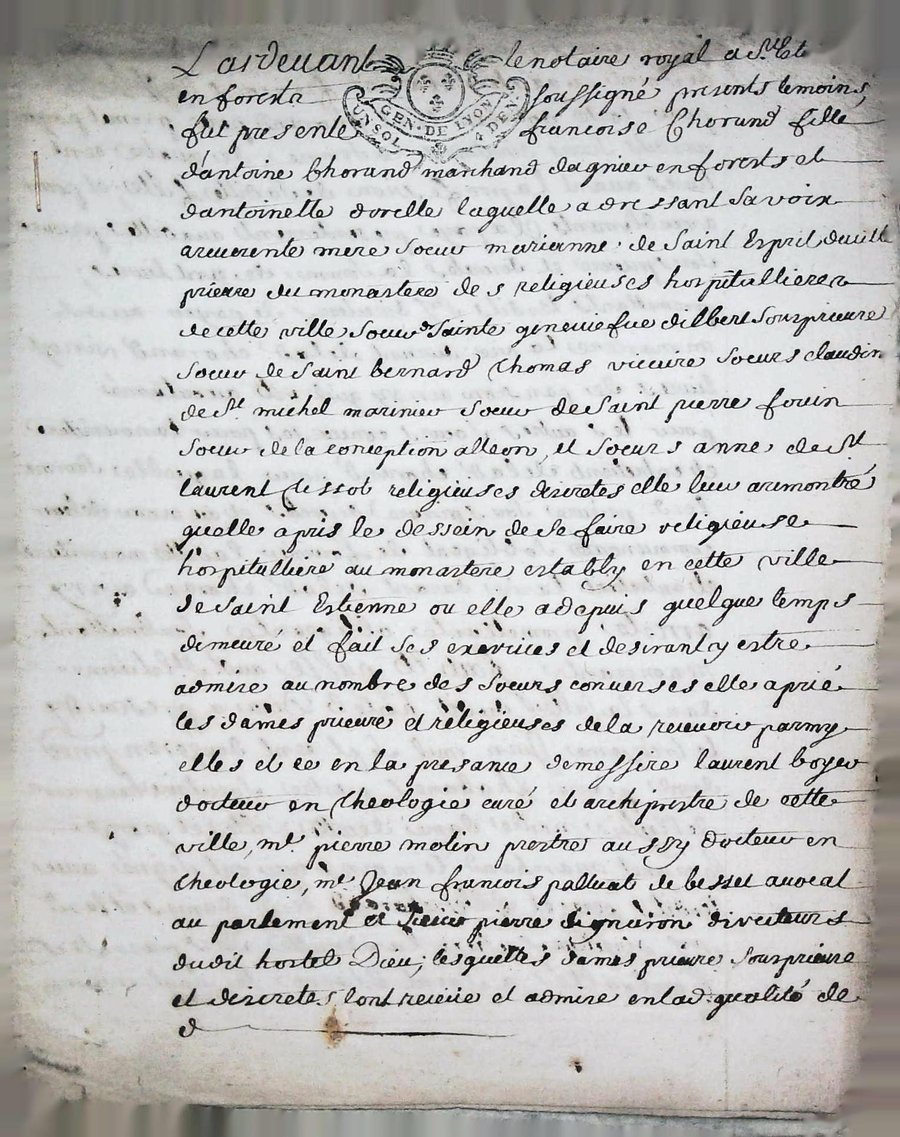 Pardevant le notaire royal a St Et
en forestz soussigné presents temoins,
GEN · DE LYON
UN SOL 4 DEN
fut presente francoise Chorand fille
d'antoine Chorand marchand dagnieu en forests et
dantoinette dorelle laquelle adressant sa voix
a reverente mere soeur marianne de saint Esprit deville
prieure du monastere des religieuses hospitallieres
de cette ville soeur de sainte geneviefue dilbert sousprieure
soeur de saint bernard thomas vicaire soeurs claudine
de St michel marinier soeur de saint pierre fouin
soeur de la conception alleon, et soeurs anne de St
laurent religieuses discretes elle leur a remontré
quelle a pris le dessein de se faire religieuse
hospitalliere au monastere estably en cette ville
de saint Estienne ou elle a depuis quelque temps
demeuré et fait ses exercices et desirant y estre
admise au nombre des soeurs converses elle a prié
les dames prieure et religieuses de la recevoir parmy
elles et ce en la presance de messire laurent boyer
docteur en theologie curé et archiprestre de cette
ville, mre pierre molin prestre aussy docteur en
theologie, mre Jean francois palluat de besset avocat
au parlement et sieur pierre directeurs
dudit hostel Dieu; lesquelles dames prieure sousprieure
et discretes lont receüe et admise en lad. qualité de
d